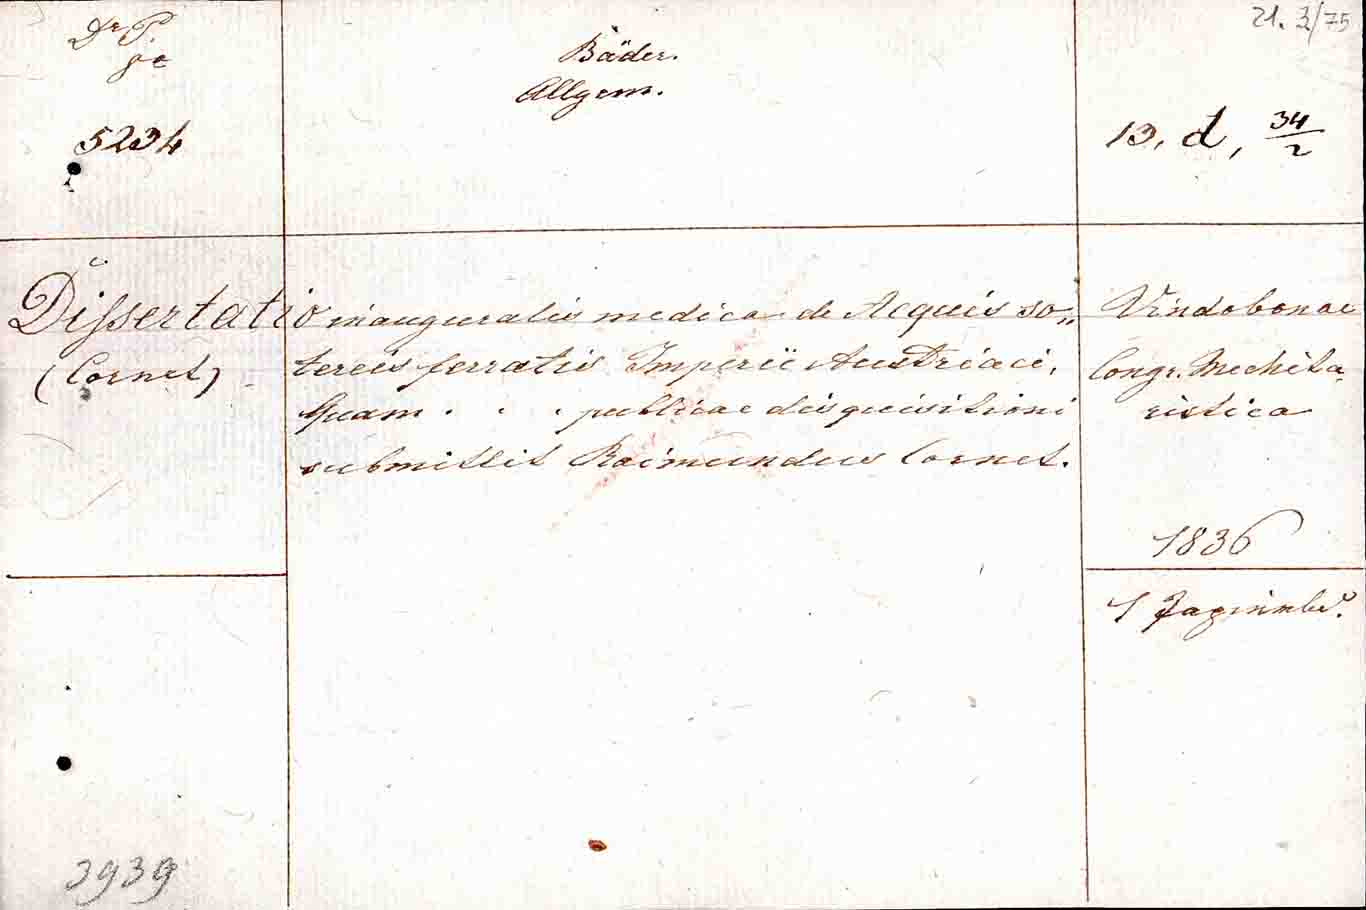 Dr P.
21. 3/75
Bäder.
Allgem.
5234
13. d, 34/2
Dissertatio inauguralis medica de Acquis so„
tereis ferratis Imperii Austriaci,
Quam . . . publicae disquisitioni
submittit Raimundus Cornet.
(Cornet)
Vindobonae
Congr. Mechita„
ristica
1836
1 Papierbd.
3939